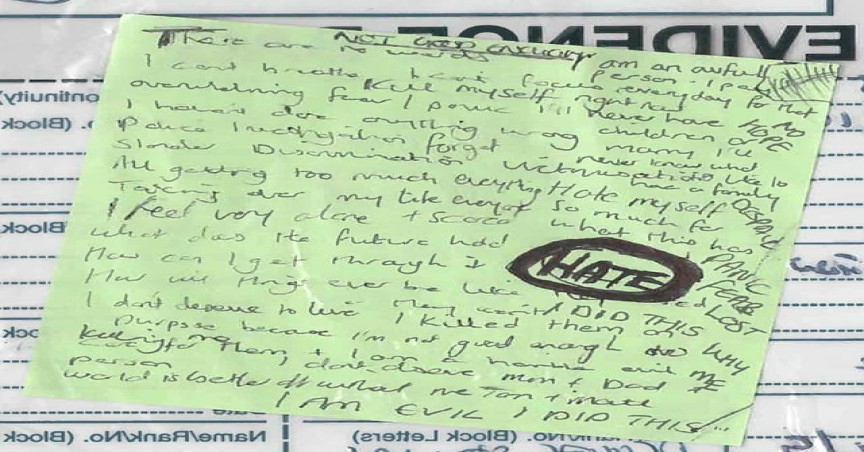 EVIDENCE
NOT GOOD ENOUGH
There are no words I am an awful person I pay every day for that
I can't breathe I can't focus
overwhelming fear I panic Kill myself right now
I haven't done anything wrong I'll never have children or
NO HOPE
Police Investigation forget marry I'll never know what
Slander Discrimination Victimisation it's like to have a family
All getting too much everything Hate myself DESPAIR
Taking over my life so much for what this has
I feel very alone + scared
PANIC
what does the future hold
FEAR
How can I get through it
HATE
LOST
How will things ever be like
I don't deserve to live I DID THIS
WHY ME
I killed them on
purpose because I'm not good enough to
care for them + I am a horrible evil
person I don't deserve Mum + Dad
world is better off without me
I AM EVIL I DID THIS
(Block Letters)
Name/Rank/No. (Block